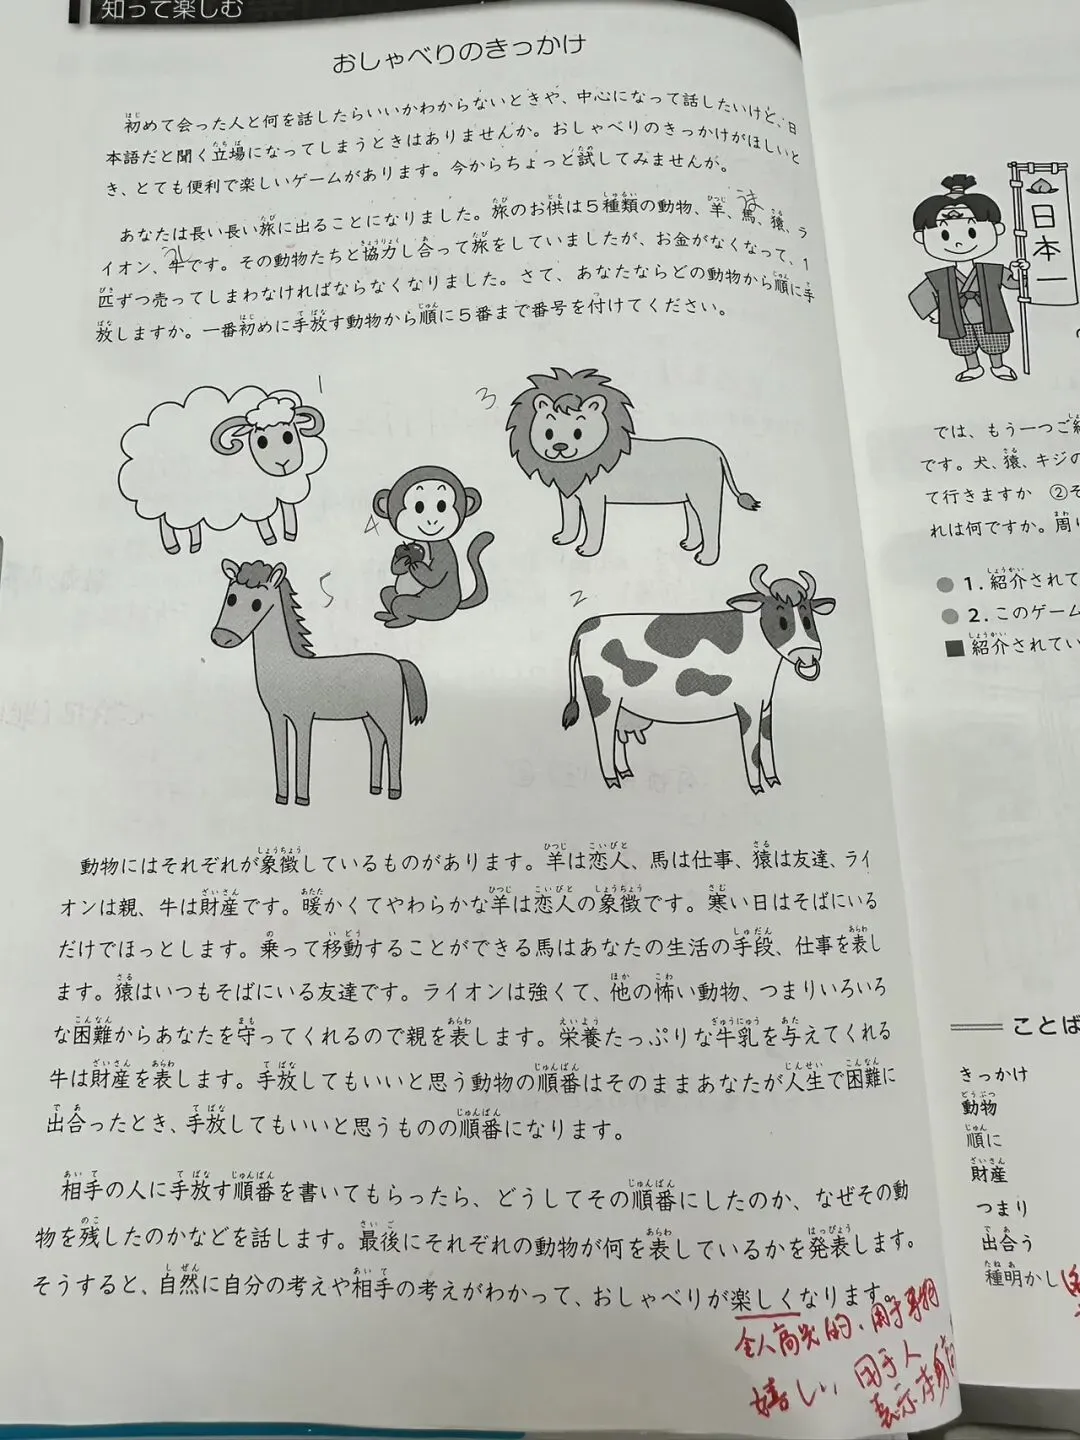 知って楽しむ
おしゃべりのきっかけ
初めて会った人と何を話したらいいかわからないときや、中心になって話したいけど、日
本語だと聞く立場になってしまうときはありませんか。おしゃべりのきっかけがほしいと
き、とても便利で楽しいゲームがあります。今からちょっと試してみませんか。
あなたは長い長い旅に出ることになりました。旅のお供は5種類の動物、羊、馬、猿、ラ
イオン、牛です。その動物たちと協力し合って旅をしていましたが、お金がなくなって、1
匹ずつ売ってしまわなければならなくなりました。さて、あなたならどの動物から順に手
放しますか。一番初めに手放す動物から順に5番まで番号を付けてください。
1
3
4
5
2
動物にはそれぞれが象徴しているものがあります。羊は恋人、馬は仕事、猿は友達、ライ
オンは親、牛は財産です。暖かくてやわらかな羊は恋人の象徴です。寒い日はそばにいる
だけでほっとします。乗って移動することができる馬はあなたの生活の手段、仕事を表し
ます。猿はいつもそばにいる友達です。ライオンは強くて、他の怖い動物、つまりいろいろ
な困難からあなたを守ってくれるので親を表します。栄養たっぷりな牛乳を与えてくれる
牛は財産を表します。手放してもいいと思う動物の順番はそのままあなたが人生で困難に
出合ったとき、手放してもいいと思うものの順番になります。
相手の人に手放す順番を書いてもらったら、どうしてその順番にしたのか、なぜその動
物を残したのかなどを話します。最後にそれぞれの動物が何を表しているかを発表します。
そうすると、自然に自分の考えや相手の考えがわかって、おしゃべりが楽しくなります。
令人高兴的、用于事物
嬉しい 用于人
表示本身
日本一
では、もう一つご紹
です。犬、猿、キジの
て行きますか ②そ
れは何ですか。周り
1. 紹介されて
2. このゲーム
紹介されてい
ことば
きっかけ
動物
順に
財産
つまり
出合う
種明かし